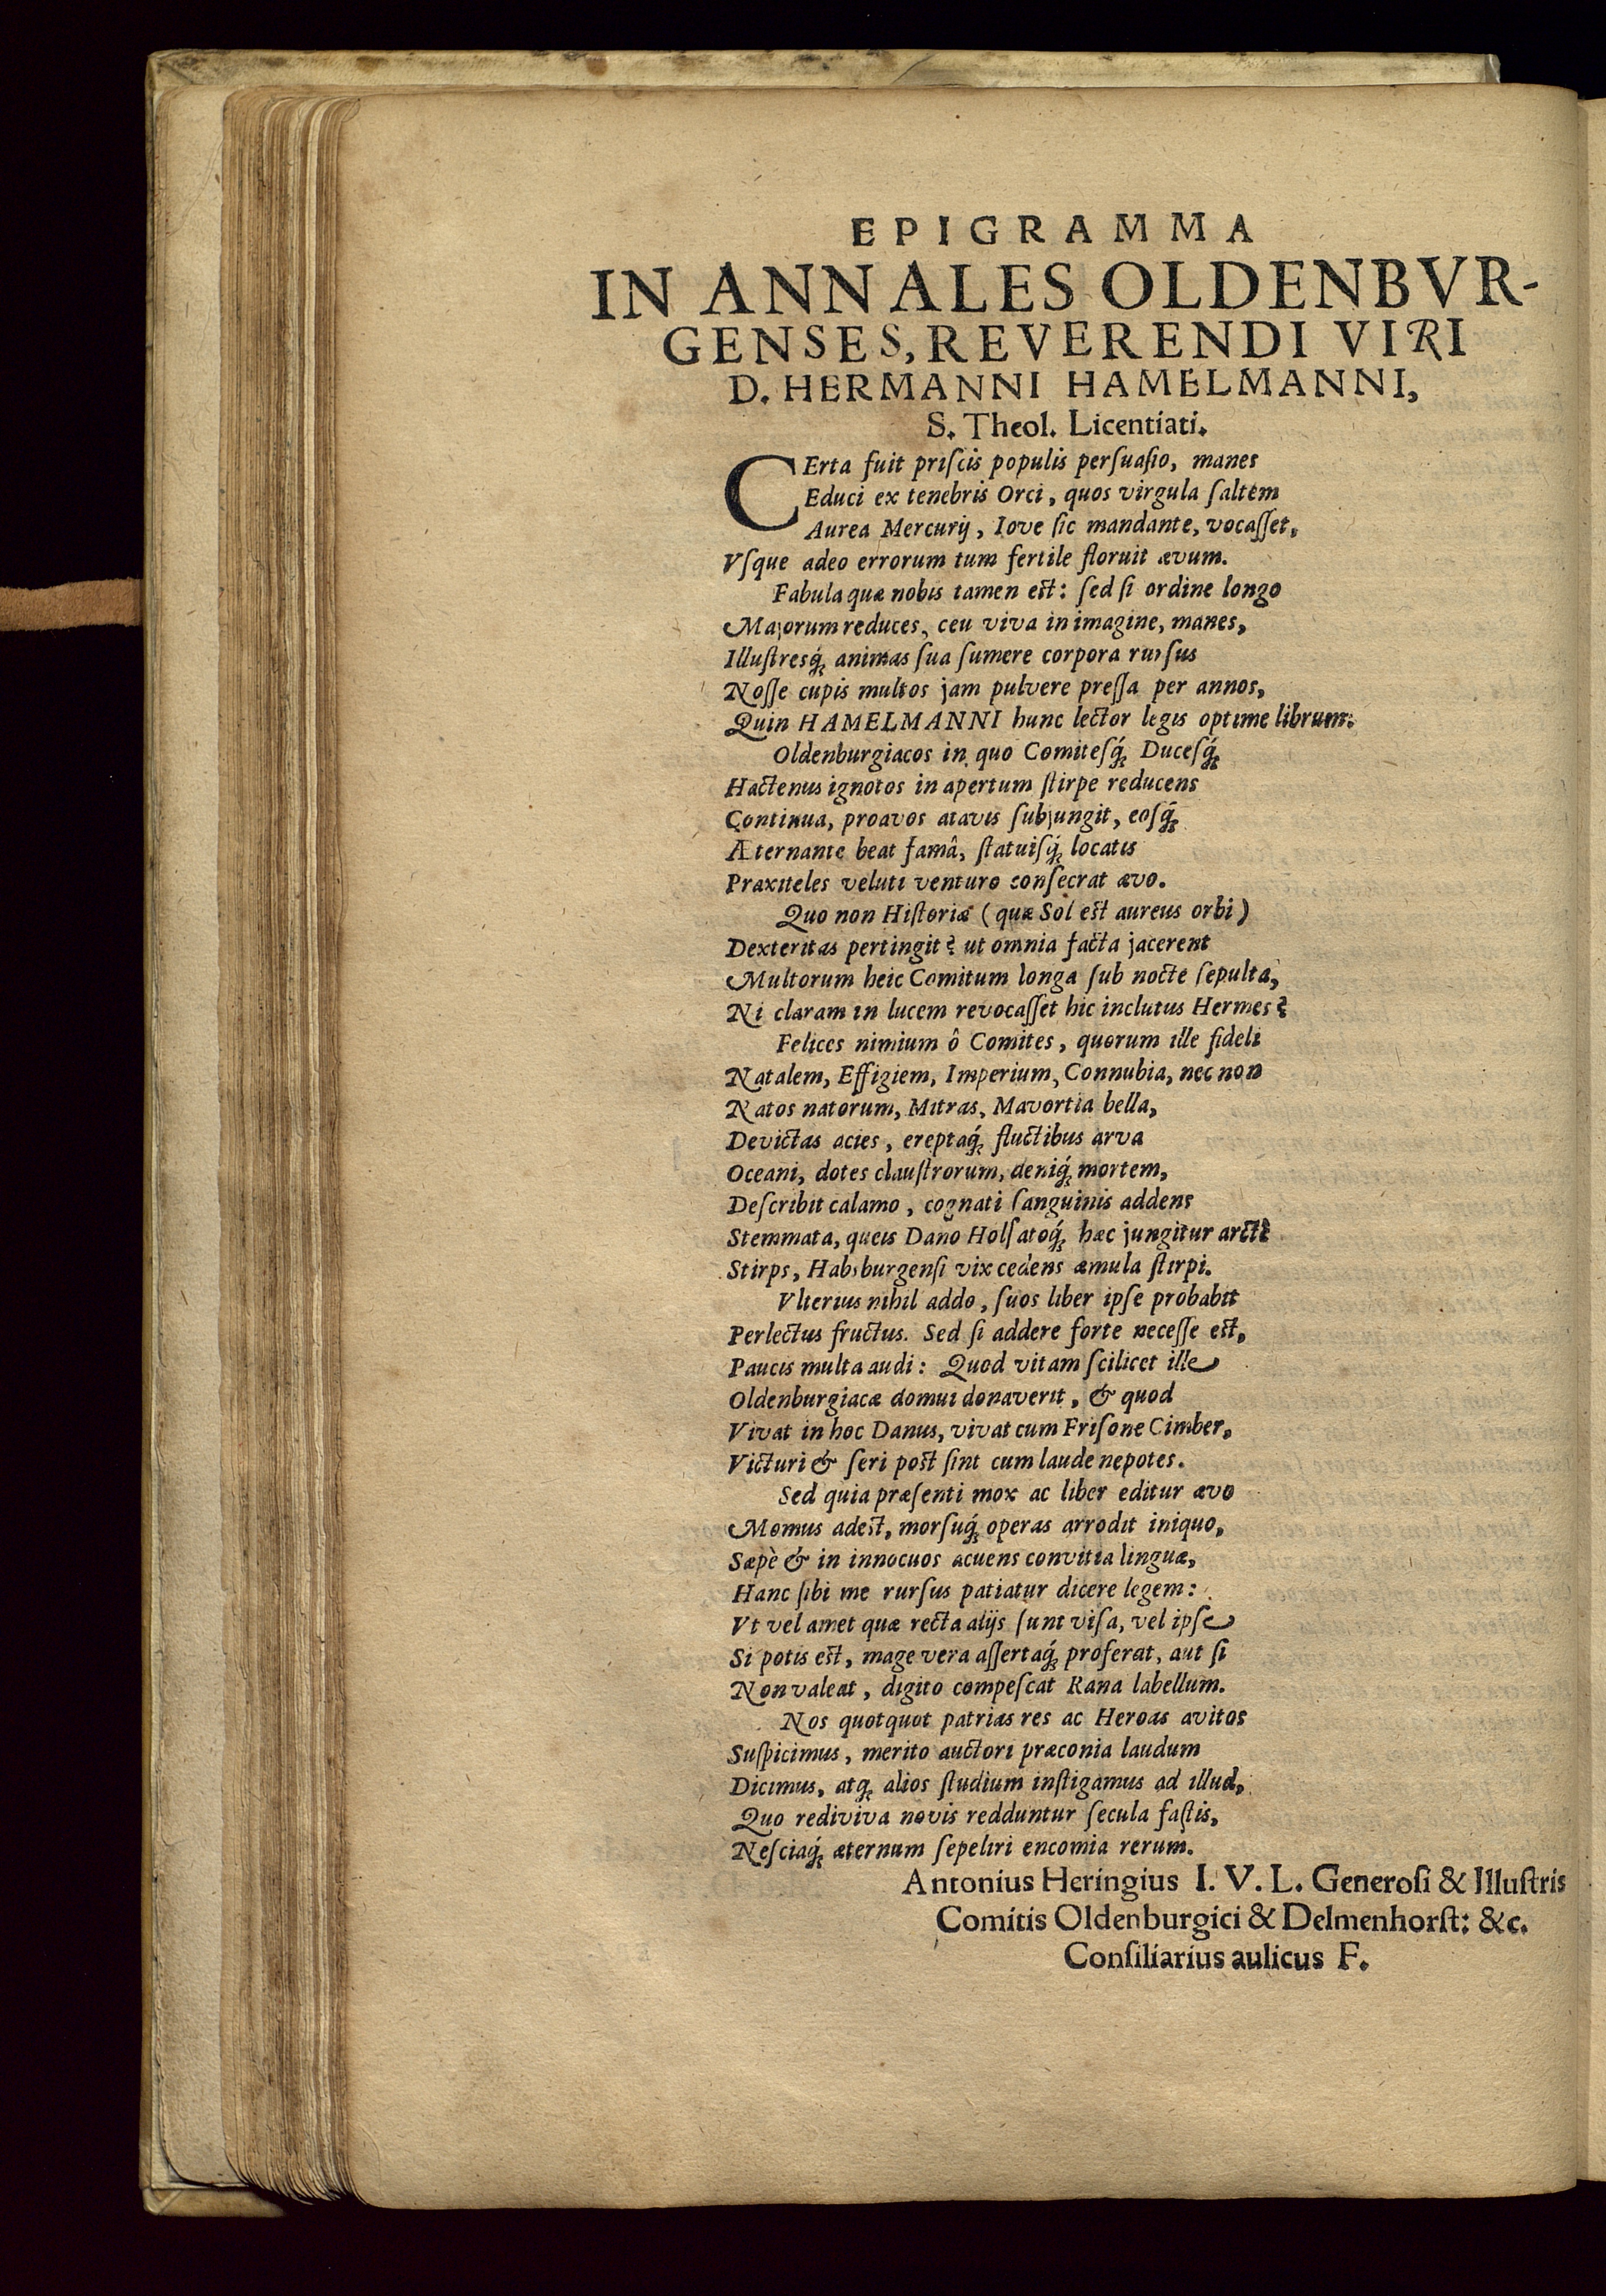 EPIGRAMMA
IN ANNALES OLDENBVR-
GENSES, REVERENDI VIRI
D. HERMANNI HAMELMANNI,
S. Theol. Licentiati.
CErta fuit priſcis populis perſuaſio, manes
Educi ex tenebris Orci, quos virgula ſaltem
Aurea Mercurij, Iove ſic mandante, vocaſſet,
Vſque adeo errorum tum fertile floruit ævum.
Fabula quæ nobis tamen eſt: ſed ſi ordine longo
Majorum reduces, ceu viva in imagine, manes,
Illuſtresq́; animas ſua ſumere corpora rurſus
Noſſe cupis multos jam pulvere preſſa per annos,
Quin HAMELMANNI hunc lector legis optime librum:
Oldenburgiacos in quo Comiteſq́; Duceſq́;
Hactenus ignotos in apertum ſtirpe reducens
Continua, proavos atavis ſubjungit, eoſq́;
Æternante beat famâ, ſtatuiſq́; locatis
Praxiteles veluti venturo conſecrat ævo.
Quo non Hiſtoriæ (quæ Sol eſt aureus orbi)
Dexteritas pertingit? ut omnia facta jacerent
Multorum heic Comitum longa ſub nocte ſepulta,
Ni claram in lucem revocaſſet hic inclutus Hermes?
Felices nimium ô Comites, quorum ille fideli
Natalem, Effigiem, Imperium, Connubia, nec non
Natos natorum, Mitras, Mavortia bella,
Devictas acies, ereptaq́; fluctibus arva
Oceani, dotes clauſtrorum, deniq́; mortem,
Deſcribit calamo, cognati ſanguinis addens
Stemmata, queis Dano Holſatoq́; hæc jungitur arctè
Stirps, Habsburgenſi vix cedens æmula ſtirpi.
Vlterius nihil addo, ſuos liber ipſe probabit
Perlectus fructus. Sed ſi addere forte neceſſe eſt,
Paucis multa audi: Quod vitam ſcilicet ille
Oldenburgiacæ domui donaverit, & quod
Vivat in hoc Danus, vivat cum Friſone Cimber,
Victuri & ſeri poſt ſint cum laude nepotes.
Sed quia præſenti mox ac liber editur ævo
Momus adeſt, morſuq́; operas arrodit iniquo,
Sæpè & in innocuos acuens convitia linguæ,
Hanc ſibi me rurſus patiatur dicere legem:
Vt vel amet quæ recta alijs ſunt viſa, vel ipſe
Si potis eſt, mage vera aſſertaq́; proferat, aut ſi
Non valeat, digito compeſcat Rana labellum.
Nos quotquot patrias res ac Heroas avitos
Suſpicimus, merito auctori præconia laudum
Dicimus, atq; alios ſtudium inſtigamus ad illud,
Quo rediviva novis redduntur ſecula faſtis,
Neſciaq́; æternum ſepeliri encomia rerum.
Antonius Heringius I. V. L. Generoſi & Illuſtris
Comitis Oldenburgici & Delmenhorſt: &c.
Conſiliarius aulicus F.